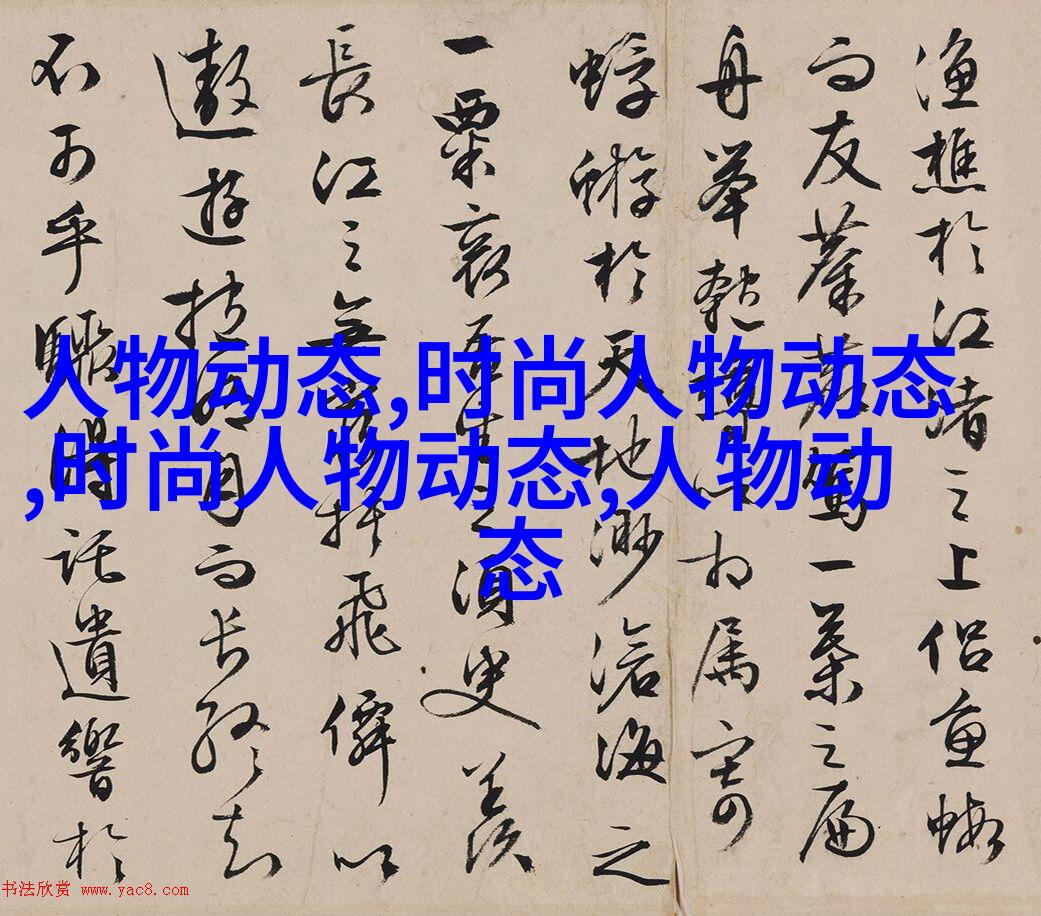 漁樵於江渚之上侣魚蝦
而友麋鹿駕一葉之扁
舟舉匏樽以相属寄
蜉蝣於天地渺滄海之
一粟哀吾生之須臾羨
長江之無窮挾飛僊以
遨遊抱明月而長終知
不可乎驟得託遺響於
人物动态,时尚人物动态
,时尚人物动态,人物动
态
书法欣赏 www.yac8.com